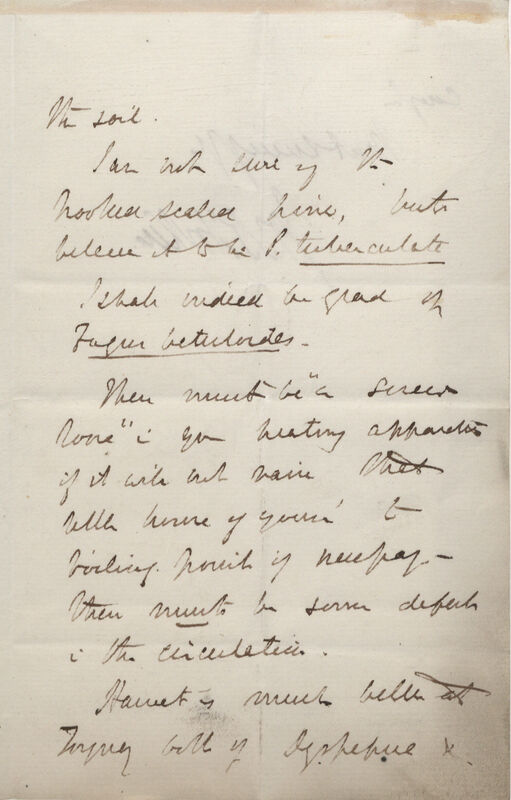 the soil.
I am not sure of the
hooked scaled pine, but
believe it to be P. tuberculata
I shall indeed be glad of
Fagus betuloides.
There must be "a screw
loose" i your heating apparatus
if it will not raise that
little house of yours to
boiling point if necessary -
there must be some defect
i the circulation.
Harriet is much better at
Torquay both of Dyspepsia &